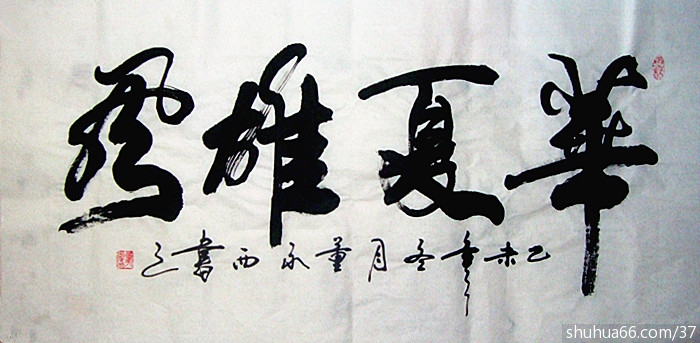 華夏雄風
乙未年冬月董永西書之
shuhua66.com/37